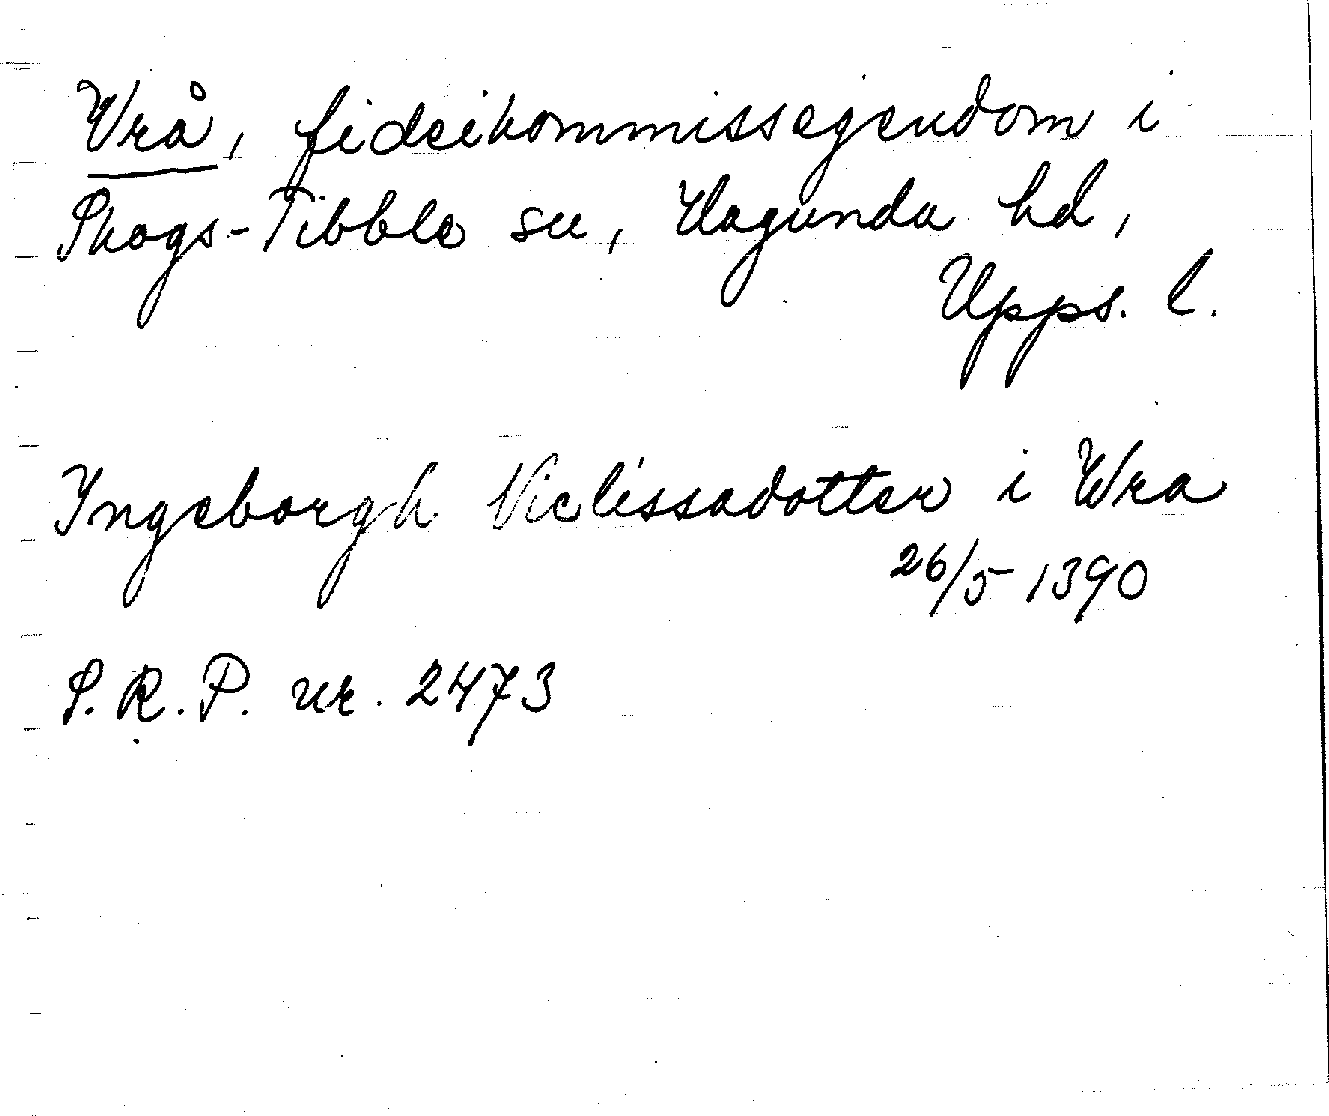 Vrå, fideikommissegendom i
Skogs-Tibble sn, Hagunda hd,
Upps. l.
Ingeborgh Niclissadotter i Wra
26/5 1390
S.R.P. nr. 2473